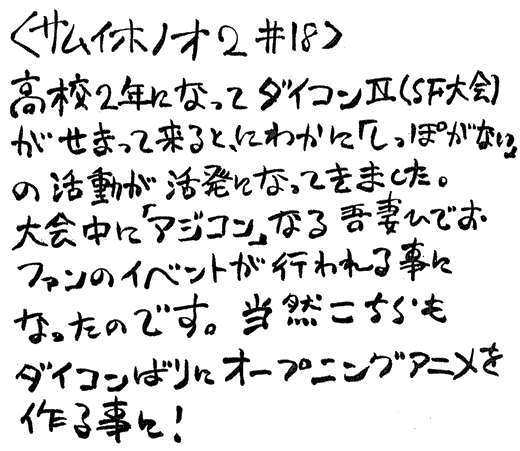 <サムイホノオ2 #18>
高校2年になってダイコンⅣ(SF大会)
がせまって来ると、にわかに「しっぽがない」
の活動が活発になってきました。
大会中に「アジコン」なる吾妻ひでお
ファンのイベントが行われる事に
なったのです。当然こちらも
ダイコンばりにオープニングアニメを
作る事に!